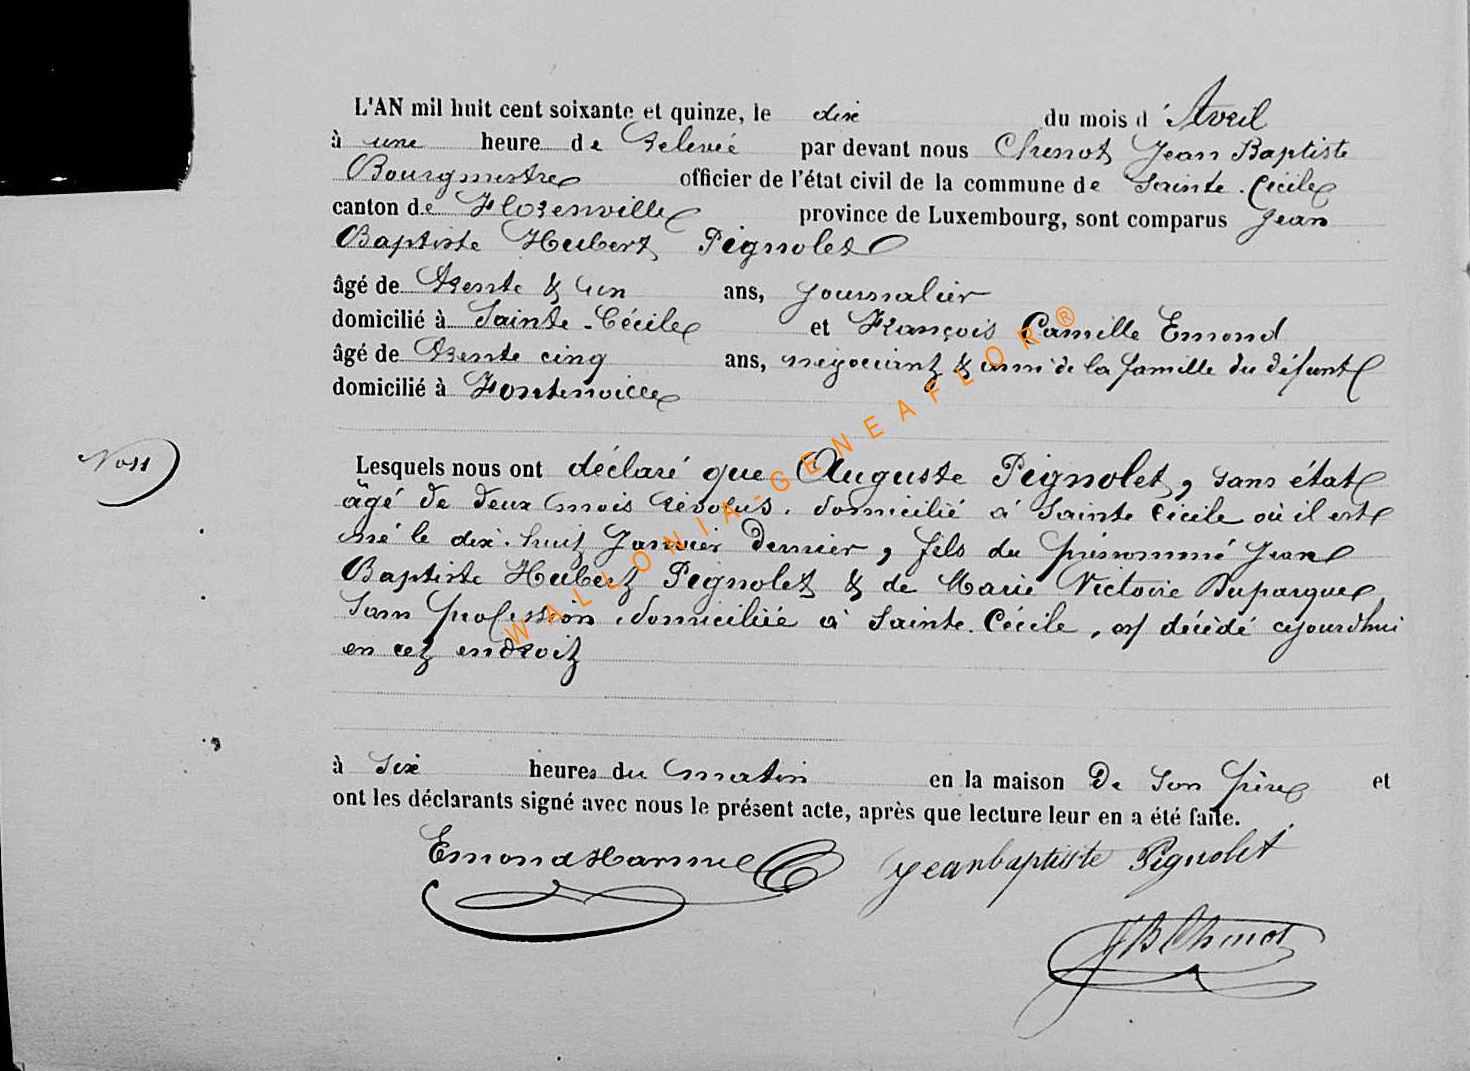 L'AN mil huit cent soixante et quinze, le dix du mois d'Avril
à une heure de Relevée par devant nous Chenot Jean Baptiste
Bourgmestre officier de l'état civil de la commune de Sainte-Cécile
canton de Florenville province de Luxembourg, sont comparus Jean
Baptiste Hubert Pignolet
âgé de Trente & un ans, journalier
domicilié à Sainte-Cécile et François Camille Emond
âgé de Trente cinq ans, négociant & ami de la famille du défunt
domicilié à Fontenoille
No 11
Lesquels nous ont déclaré que Auguste Pignolet, sans état
âgé de deux mois révolus, domicilié à Sainte Cécile où il est
né le dix-huit Janvier dernier, fils du prénommé Jean
Baptiste Hubert Pignolet & de Marie Victoire Duparque,
sans profession, domiciliée à Sainte-Cécile, est décédé cejourd'hui
en cet endroit
à six heures du matin en la maison de son père et
ont les déclarants signé avec nous le présent acte, après que lecture leur en a été faite.
Emond Harmel Jeanbaptiste Pignolet
JB Chenot
WALLONIA-GENEAFLOR®